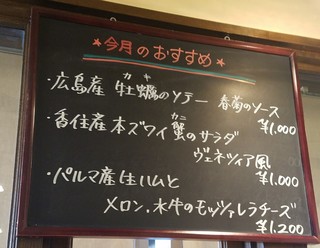 ★今月のおすすめ★
・広島産 牡蠣のソテー 春菊のソース
カキ
¥1,000
・香住産本ズワイ蟹のサラダ
カニ
ヴェネツィア風
¥1,000
・パルマ産生ハムと
メロン.水牛のモッツァレラチーズ
¥1,200